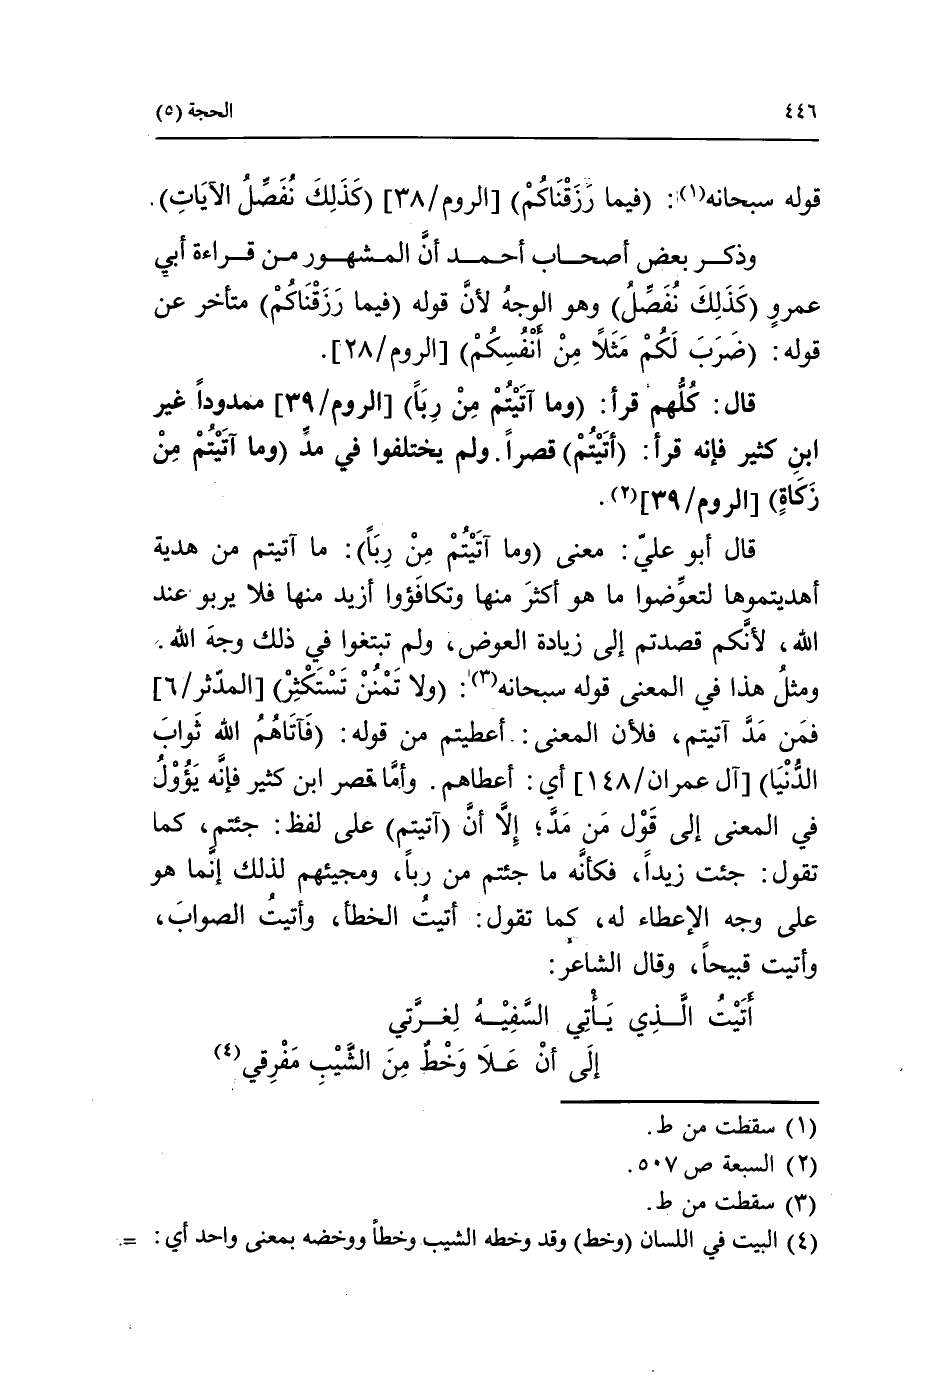 ٤٤٦ الحجة (٥)
قوله سبحانه(١): (فيما رَزَقْنَاكُمْ) [الروم/٣٨] (كَذَلِكَ نُفَصِّلُ الآيَاتِ).
وذكر بعض أصحاب أحمد أنَّ المشهور من قراءة أبي
عمروٍ (كَذَلِكَ نُفَصِّلُ) وهو الوجهُ لأنَّ قوله (فيما رَزَقْنَاكُمْ) متأخر عن
قوله: (ضَرَبَ لَكُمْ مَثَلاً مِنْ أَنْفُسِكُمْ) [الروم/٢٨].
قال: كُلُّهم قرأ: (وما آتَيْتُمْ مِنْ رِبَاً) [الروم/٣٩] ممدوداً غير
ابنِ كثير فإنه قرأ: (أتَيْتُمْ) قصراً. ولم يختلفوا في مدِّ (وما آتَيْتُمْ مِنْ
زَكَاةٍ) [الروم/٣٩](٢).
قال أبو عليّ: معنى (وما آتَيْتُمْ مِنْ رِبَاً): ما آتيتم من هدية
أهديتموها لتعوِّضوا ما هو أكثرَ منها وتكافَؤوا أزيد منها فلا يربو عند
الله، لأنَّكم قصدتم إلى زيادة العوض، ولم تبتغوا في ذلك وجهَ الله.
ومثلُ هذا في المعنى قوله سبحانه(٣): (ولا تَمْنُنْ تَسْتَكْثِرْ) [المدّثر/٦]
فمَن مَدَّ آتيتم، فلأن المعنى: أعطيتم من قوله: (فَآتَاهُمُ الله ثَوابَ
الدُّنْيَا) [آل عمران/١٤٨] أي: أعطاهم. وأمَّا قصر ابن كثير فإنَّه يَؤُوْلُ
في المعنى إلى قَوْل مَن مَدَّ؛ إلَّا أنَّ (آتيتم) على لفظ: جئتم، كما
تقول: جئت زيداً، فكأنَّه ما جئتم من رباً، ومجيئهم لذلك إنَّما هو
على وجه الإعطاء له، كما تقول: أتيتُ الخطأ، وأتيتُ الصوابَ،
وأتيت قبيحاً، وقال الشاعر:
أَتَيْتُ الَّذِي يَأْتِي السَّفِيْهُ لِغرَّتي
إلَى أنْ عَلَا وَخْطٌ مِنَ الشَّيْبِ مَفْرِقي(٤)
(١) سقطت من ط.
(٢) السبعة ص ٥٠٧.
(٣) سقطت من ط.
(٤) البيت في اللسان (وخط) وقد وخطه الشيب وخطاً ووخضه بمعنى واحد أي: =